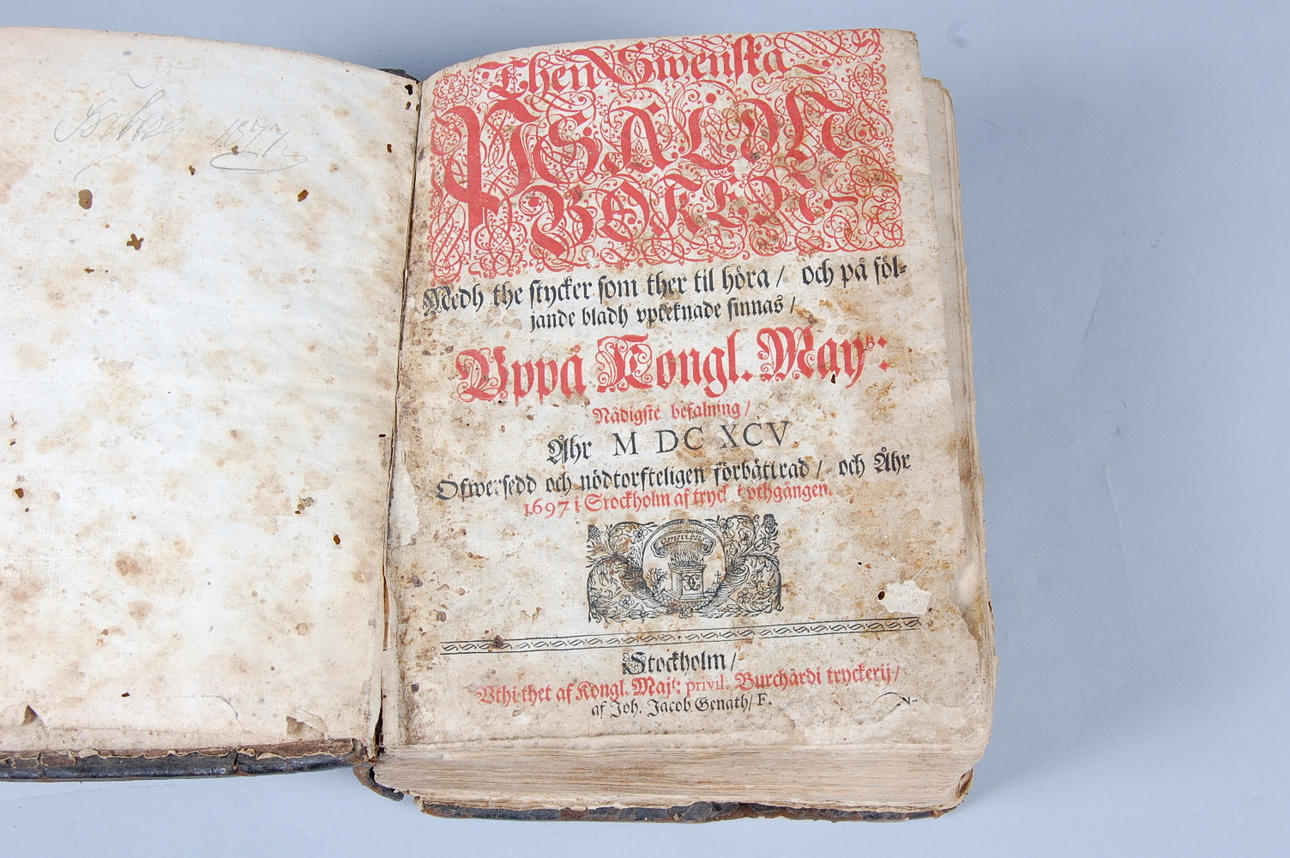 1877
Then Swenska
PSALM
BOKEN
Medh the stycker som ther til höra / och på föl-
jande bladh vpteknade finnas /
Vppå Kongl. May:tz:
Nådigste befalning /
Åhr M DC XCV
Öfwersedd och nödtorfteligen förbättrad / och Åhr
1697 i Stockholm af trycket vthgången.
Stockholm /
Vthi thet af Kongl. Majt: privil. Burchardi tryckerij /
af Joh. Jacob Genath / F.